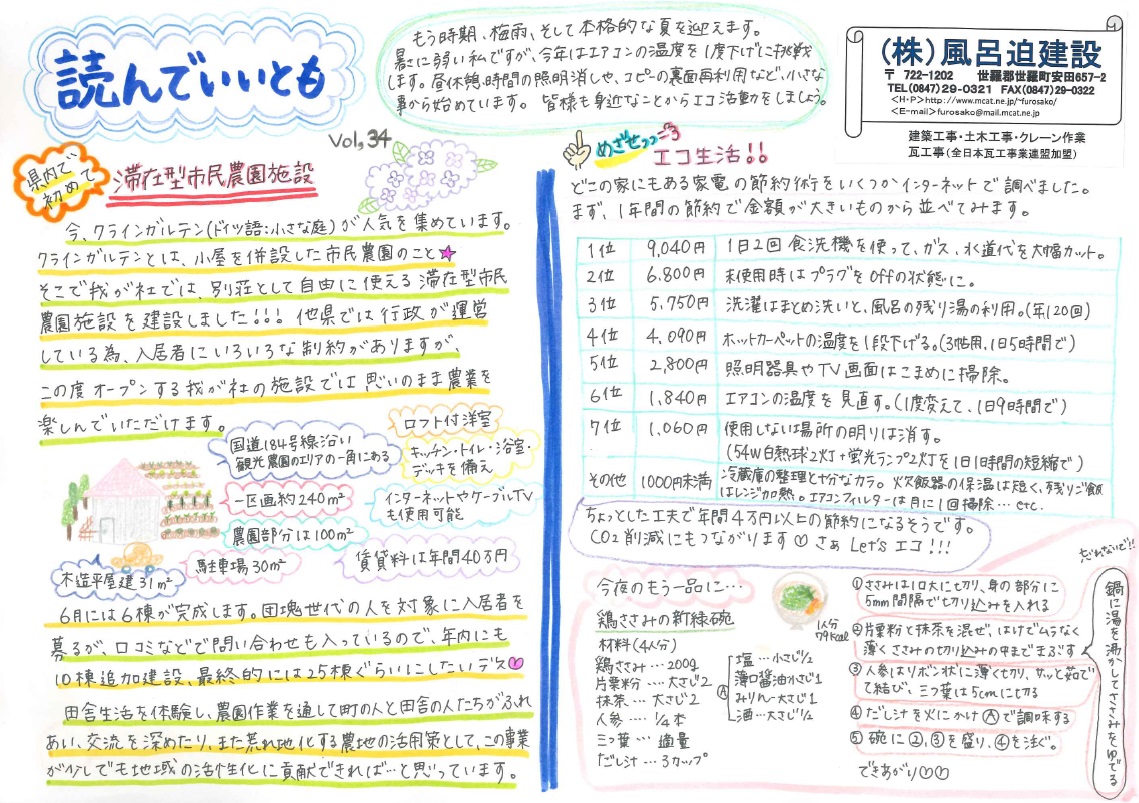 読んでいいとも
もう時期、梅雨、そして本格的な夏を迎えます。
暑さに弱い私ですが、今年はエアコンの温度を1度下げに挑戦
します。昼休憩時間の照明消しや、コピーの裏面再利用など、小さな
事から始めています。皆様も身近なことからエコ活動をしましょう。
(株)風呂迫建設
〒 722-1202 世羅郡世羅町安田657-2
TEL(0847)29-0321 FAX(0847)29-0322
<H・P>http://www.mcat.ne.jp/~furosako/
<E-mail>furosako@mail.mcat.ne.jp
建築工事・土木工事・クレーン作業
瓦工事(全日本瓦工事業連盟加盟)
Vol,34
県内で
初めて
滞在型市民農園施設
今、クラインガルテン(ドイツ語:小さな庭)が人気を集めています。
クラインガルテンとは、小屋を併設した市民農園のこと★
そこで我が社では、別荘として自由に使える滞在型市民
農園施設を建設しました!!! 他県では行政が運営
している為、入居者にいろいろな制約がありますが、
この度オープンする我が社の施設では思いのまま農業を
楽しんでいただけます。
国道184号線沿い
観光農園のエリアの一角にある
ロフト付洋室
キッチン・トイレ・浴室・
デッキを備え
一区画約240m²
インターネットやケーブルTV
も使用可能
農園部分は100m²
木造平屋建31m²
駐車場30m²
賃貸料は年間40万円
6月には6棟が完成します。団塊世代の人を対象に入居者を
募るが、口コミなどで問い合わせも入っているので、年内にも
10棟追加建設、最終的には25棟ぐらいにしたいデス♡
田舎生活を体験し、農園作業を通して町の人と田舎の人たちがふれ
あい、交流を深めたり、また荒れ地化する農地の活用策として、この事業
が少しでも地域の活性化に貢献できれば…と思っています。
めざせっっ
エコ生活!!
どこの家にもある家電の節約術をいくつかインターネットで調べました。
まず、1年間の節約で金額が大きいものから並べてみます。
1位 9,040円 1日2回食洗機を使って、ガス、水道代を大幅カット。
2位 6.800円 未使用時はプラグをoffの状態に。
3位 5,750円 洗濯はまとめ洗いと、風呂の残り湯の利用。(年120回)
4位 4,090円 ホットカーペットの温度を1段下げる。(3帖用、1日5時間で)
5位 2,800円 照明器具やTV画面はこまめに掃除。
6位 1,840円 エアコンの温度を見直す。(1度変えて、1日9時間で)
7位 1,060円 使用しない場所の明りは消す。
(54W白熱球2灯+蛍光ランプ2灯を1日1時間の短縮で)
その他 1000円未満 冷蔵庫の整理と十分なカラ。炊飯器の保温は短く、残りご飯
はレンジ加熱。エアコンフィルターは月に1回掃除… etc.
ちょっとした工夫で年間4万円以上の節約になるそうです。
CO2削減にもつながります♡ さぁ Let's エコ!!!
今夜のもう一品に…
鶏ささみの新緑碗
材料(4人分)
鶏ささみ…200g
片栗粉…大さじ2
抹茶…大さじ2
人参…1/4本
三つ葉…適量
だし汁…3カップ
Ⓐ
塩…小さじ1/2
薄口醤油小さじ1
みりん…大さじ1
酒…大さじ1/2
1人分
79kcal
①ささみは1口大に切り、身の部分に
5mm間隔で切り込みを入れる
②片栗粉と抹茶を混ぜ、はけでムラなく
薄くささみの切り込みの中までまぶす
③人参はリボン状に薄く切り、サッと茹で
て結び、三つ葉は5cmに切る
④だし汁を火にかけⒶで調味する
⑤碗に②,③を盛り、④を注ぐ。
できあがり♡♡
鍋に湯を沸かしてささみをゆでる